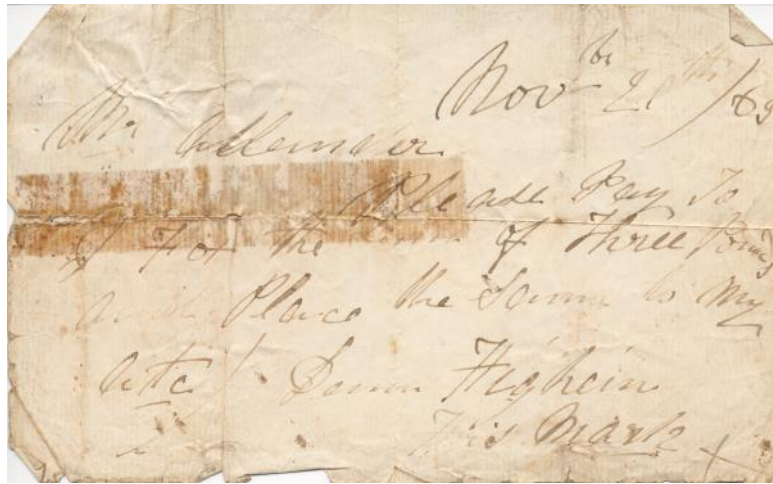 Novbr 2 th /69
Mr Allender
Please Pay To
For the Sum of Three Pounds
and Place the Same to My
Act
Heghein
His Mark X